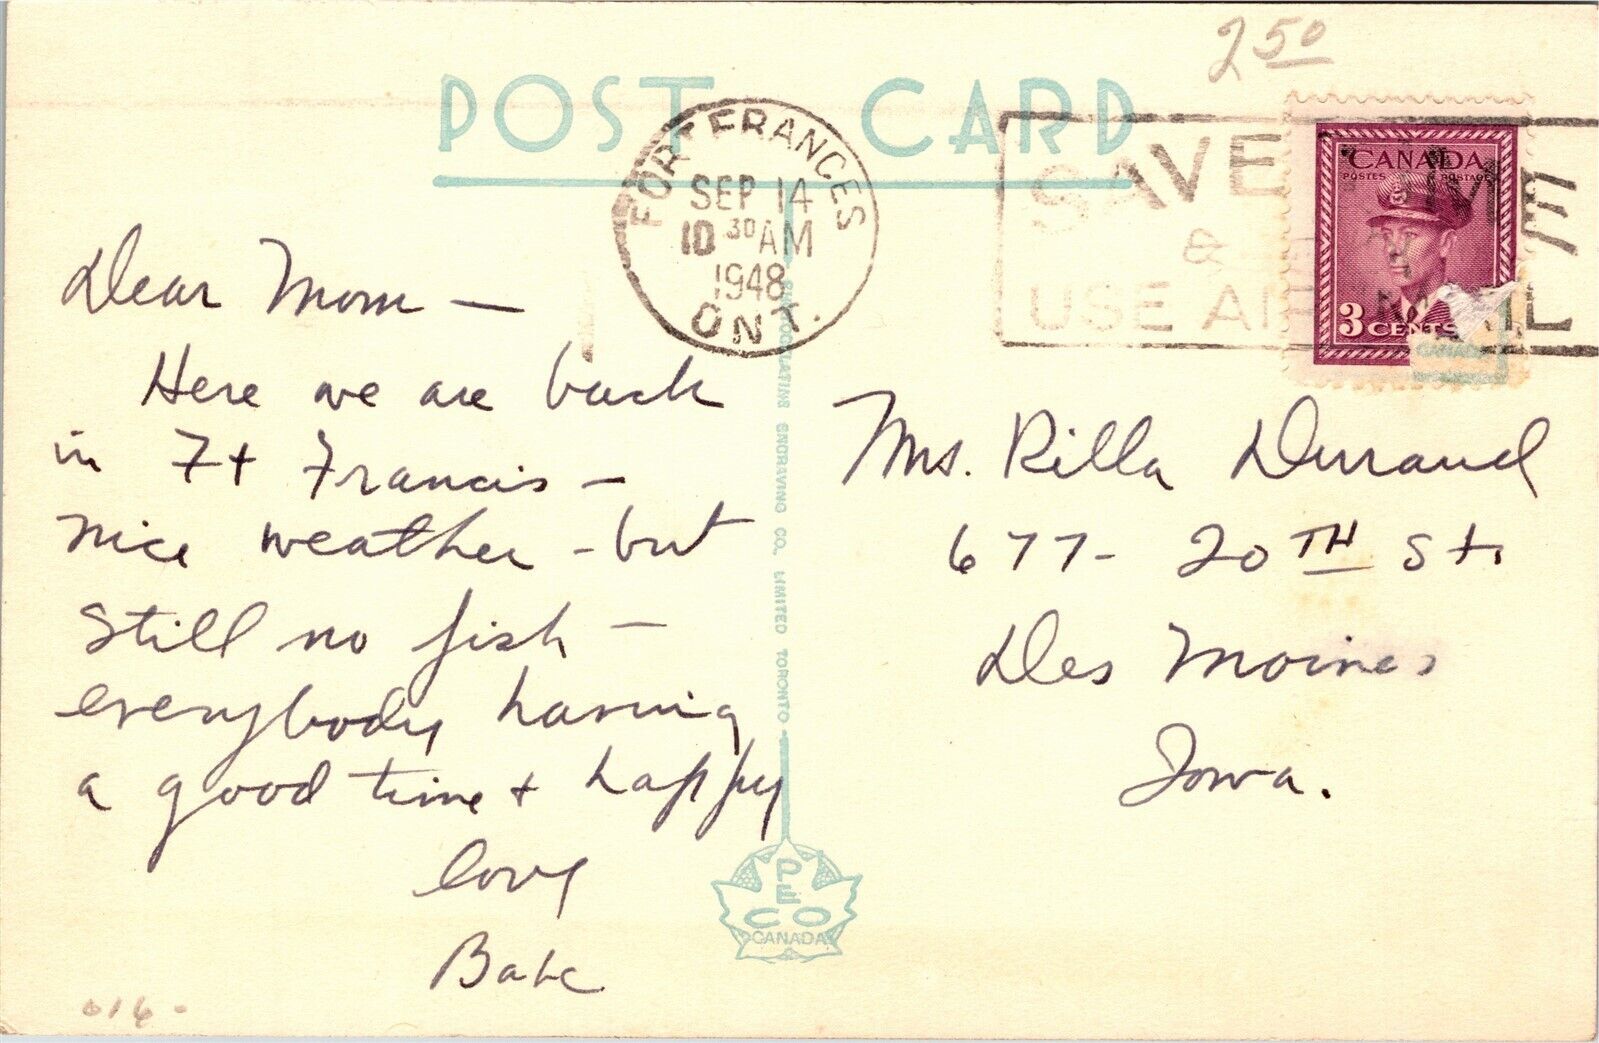 2 50
POST CARD
FORT FRANCES
SEP 14
10 30 AM
1948
ONT.
SAVE TIME
& 
USE AIR MAIL
CANADA
POSTES POSTAGE
3 CENTS
CANADA
Dear Mom —
Here we are back
in Ft Francis —
nice weather - but
still no fish —
everybody having
a good time + happy
love
Babe
Mrs. Rilla Durand
677 - 20TH St.
Des Moines
Iowa.
ENGRAVING CO. LIMITED TORONTO
PECO
CANADA
016-